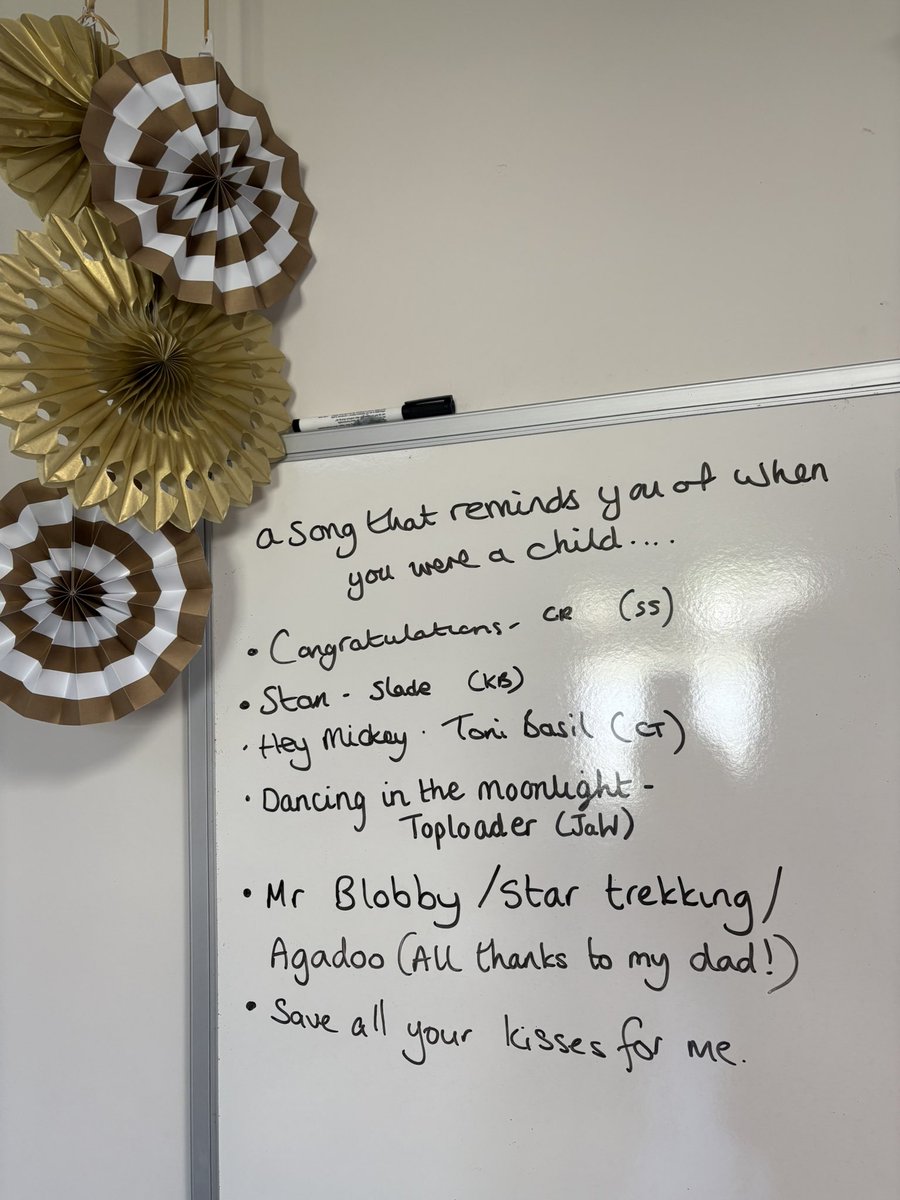 a song that reminds you of when
you were a child....
• Congratulations - CR (SS)
• Stan - Slade (KB)
• Hey Mickey . Toni Basil (CT)
• Dancing in the moonlight -
Toploader (JaW)
• Mr Blobby / Star trekking /
Agadoo (All thanks to my dad!)
• Save all your kisses for me.